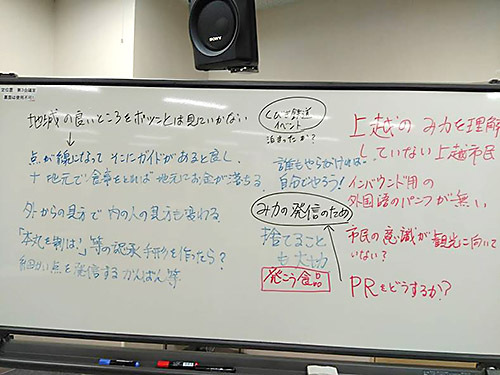 SONY
定位置 第3会議室
裏面は使用不可!
地域の良いところをポツンとは見ていかない
↓
点が線になって そこにガイドがあると良し
+ 地元で食事をとれば 地元にお金が落ちる。
外からの見方で 内の人の見方も変わる。
等の認承 手形を作ったら?
細かい点を発信する かんばん等
イベント
泊まったか?
誰もやらなければ
自分でやろう!
み力の発信のため
捨てること
も大切
発こう食品
上越の み力を理解
していない上越市民
インバウンド用の
外国語のパンフが無い
市民の意識が観光に向いて
いない?
PRをどうするか?